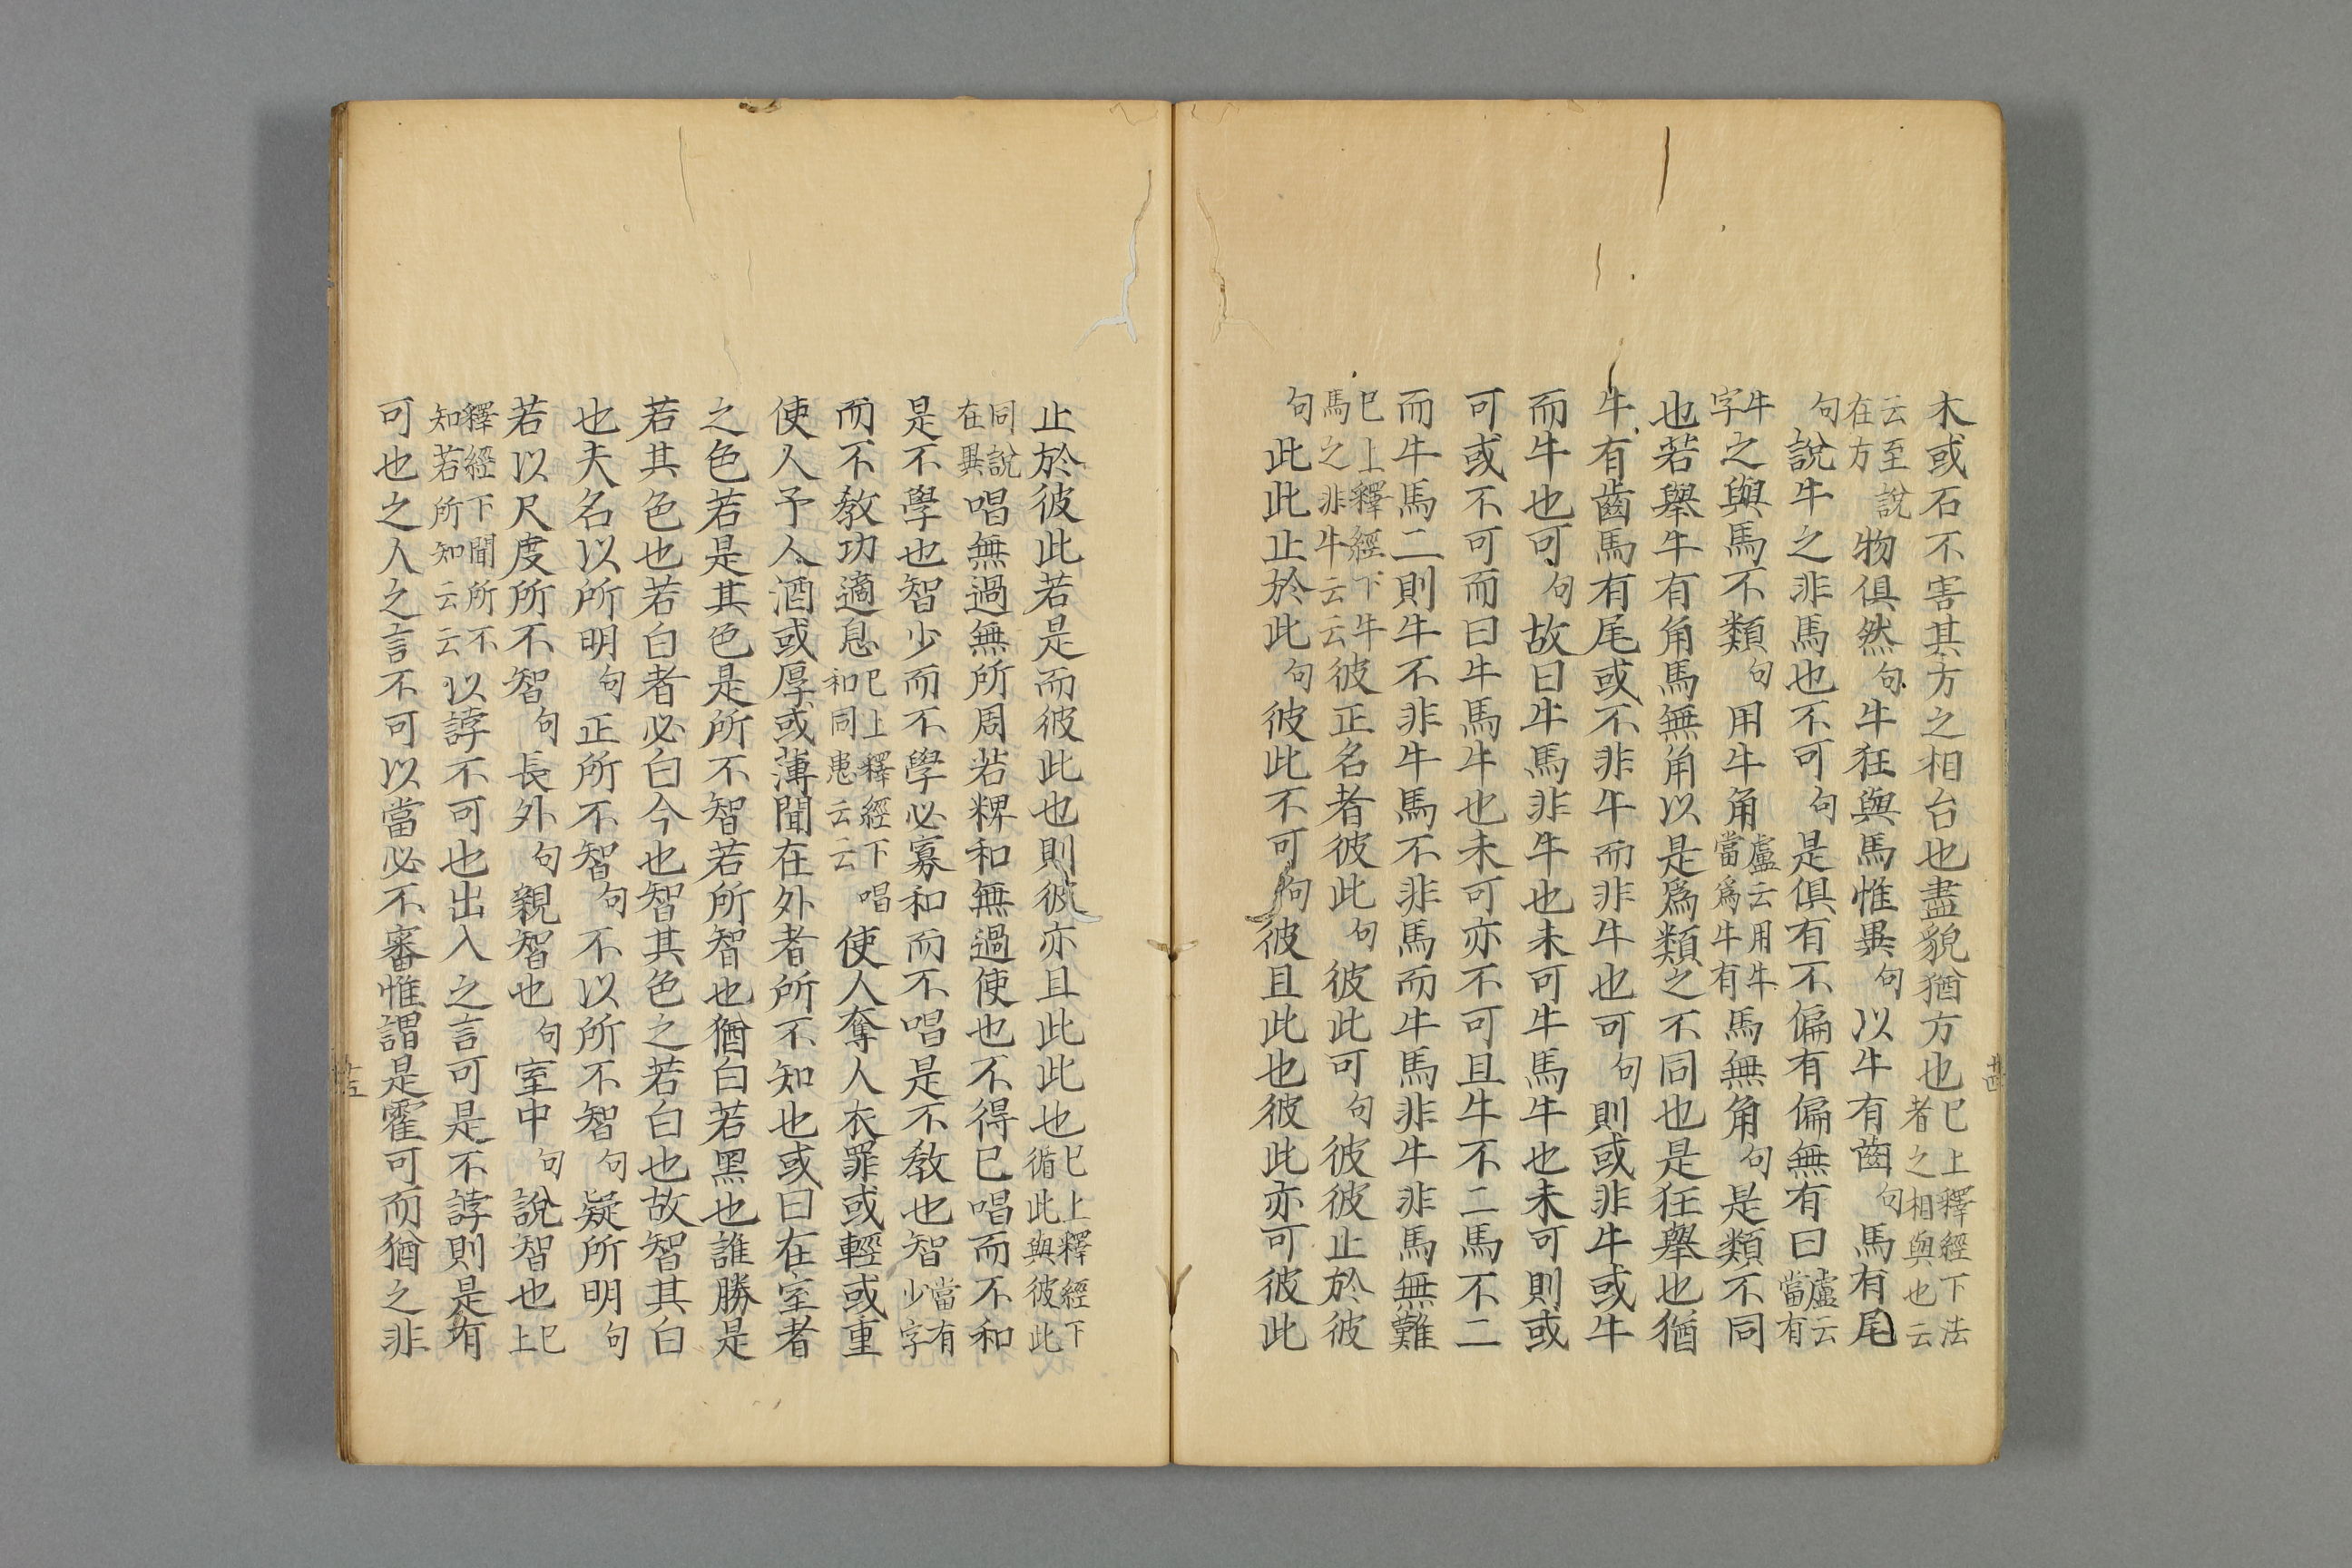 木或石不害其方之相台也盡貌猶方也已上釋經下法者之相與也云
云至說在方物俱然句牛狂與馬惟異句以牛有齒句馬有尾
句說牛之非馬也不可句是俱有不偏有偏無有曰盧云當有
牛字之與馬不類句用牛角盧云用牛當爲牛有馬無角句是類不同
也若舉牛有角馬無角以是爲類之不同也是狂舉也猶
牛有齒馬有尾或不非牛而非牛也可句則或非牛或牛
而牛也可句故曰牛馬非牛也未可牛馬牛也未可則或
可或不可而曰牛馬牛也未可亦不可且牛不二馬不二
而牛馬二則牛不非牛馬不非馬而牛馬非牛非馬無難
已上釋經下牛馬之非牛云云彼正名者彼此句彼此可句彼彼止於彼
句此此止於此句彼此不可句彼且此也彼此亦可彼此
止於彼此若是而彼此也則彼亦且此此也已上釋經下循此與彼此
同說在異唱無過無所周若粺和無過使也不得已唱而不和
是不學也智少而不學必寡和而不唱是不教也智當有少字
而不教功適息已上釋經下唱和同患云云使人奪人衣罪或輕或重
使人予人酒或厚或薄聞在外者所不知也或曰在室者
之色若是其色是所不智若所智也猶白若黑也誰勝是
若其色也若白者必白今也智其色之若白也故智其白
也夫名以所明句正所不智句不以所不智句疑所明句
若以尺度所不智句長外句親智也句室中句說智也已上
釋經下聞所不知若所知云云以誖不可也出入之言可是不誖則是有
可也之人之言不可以當必不審惟謂是霍可而猶之非